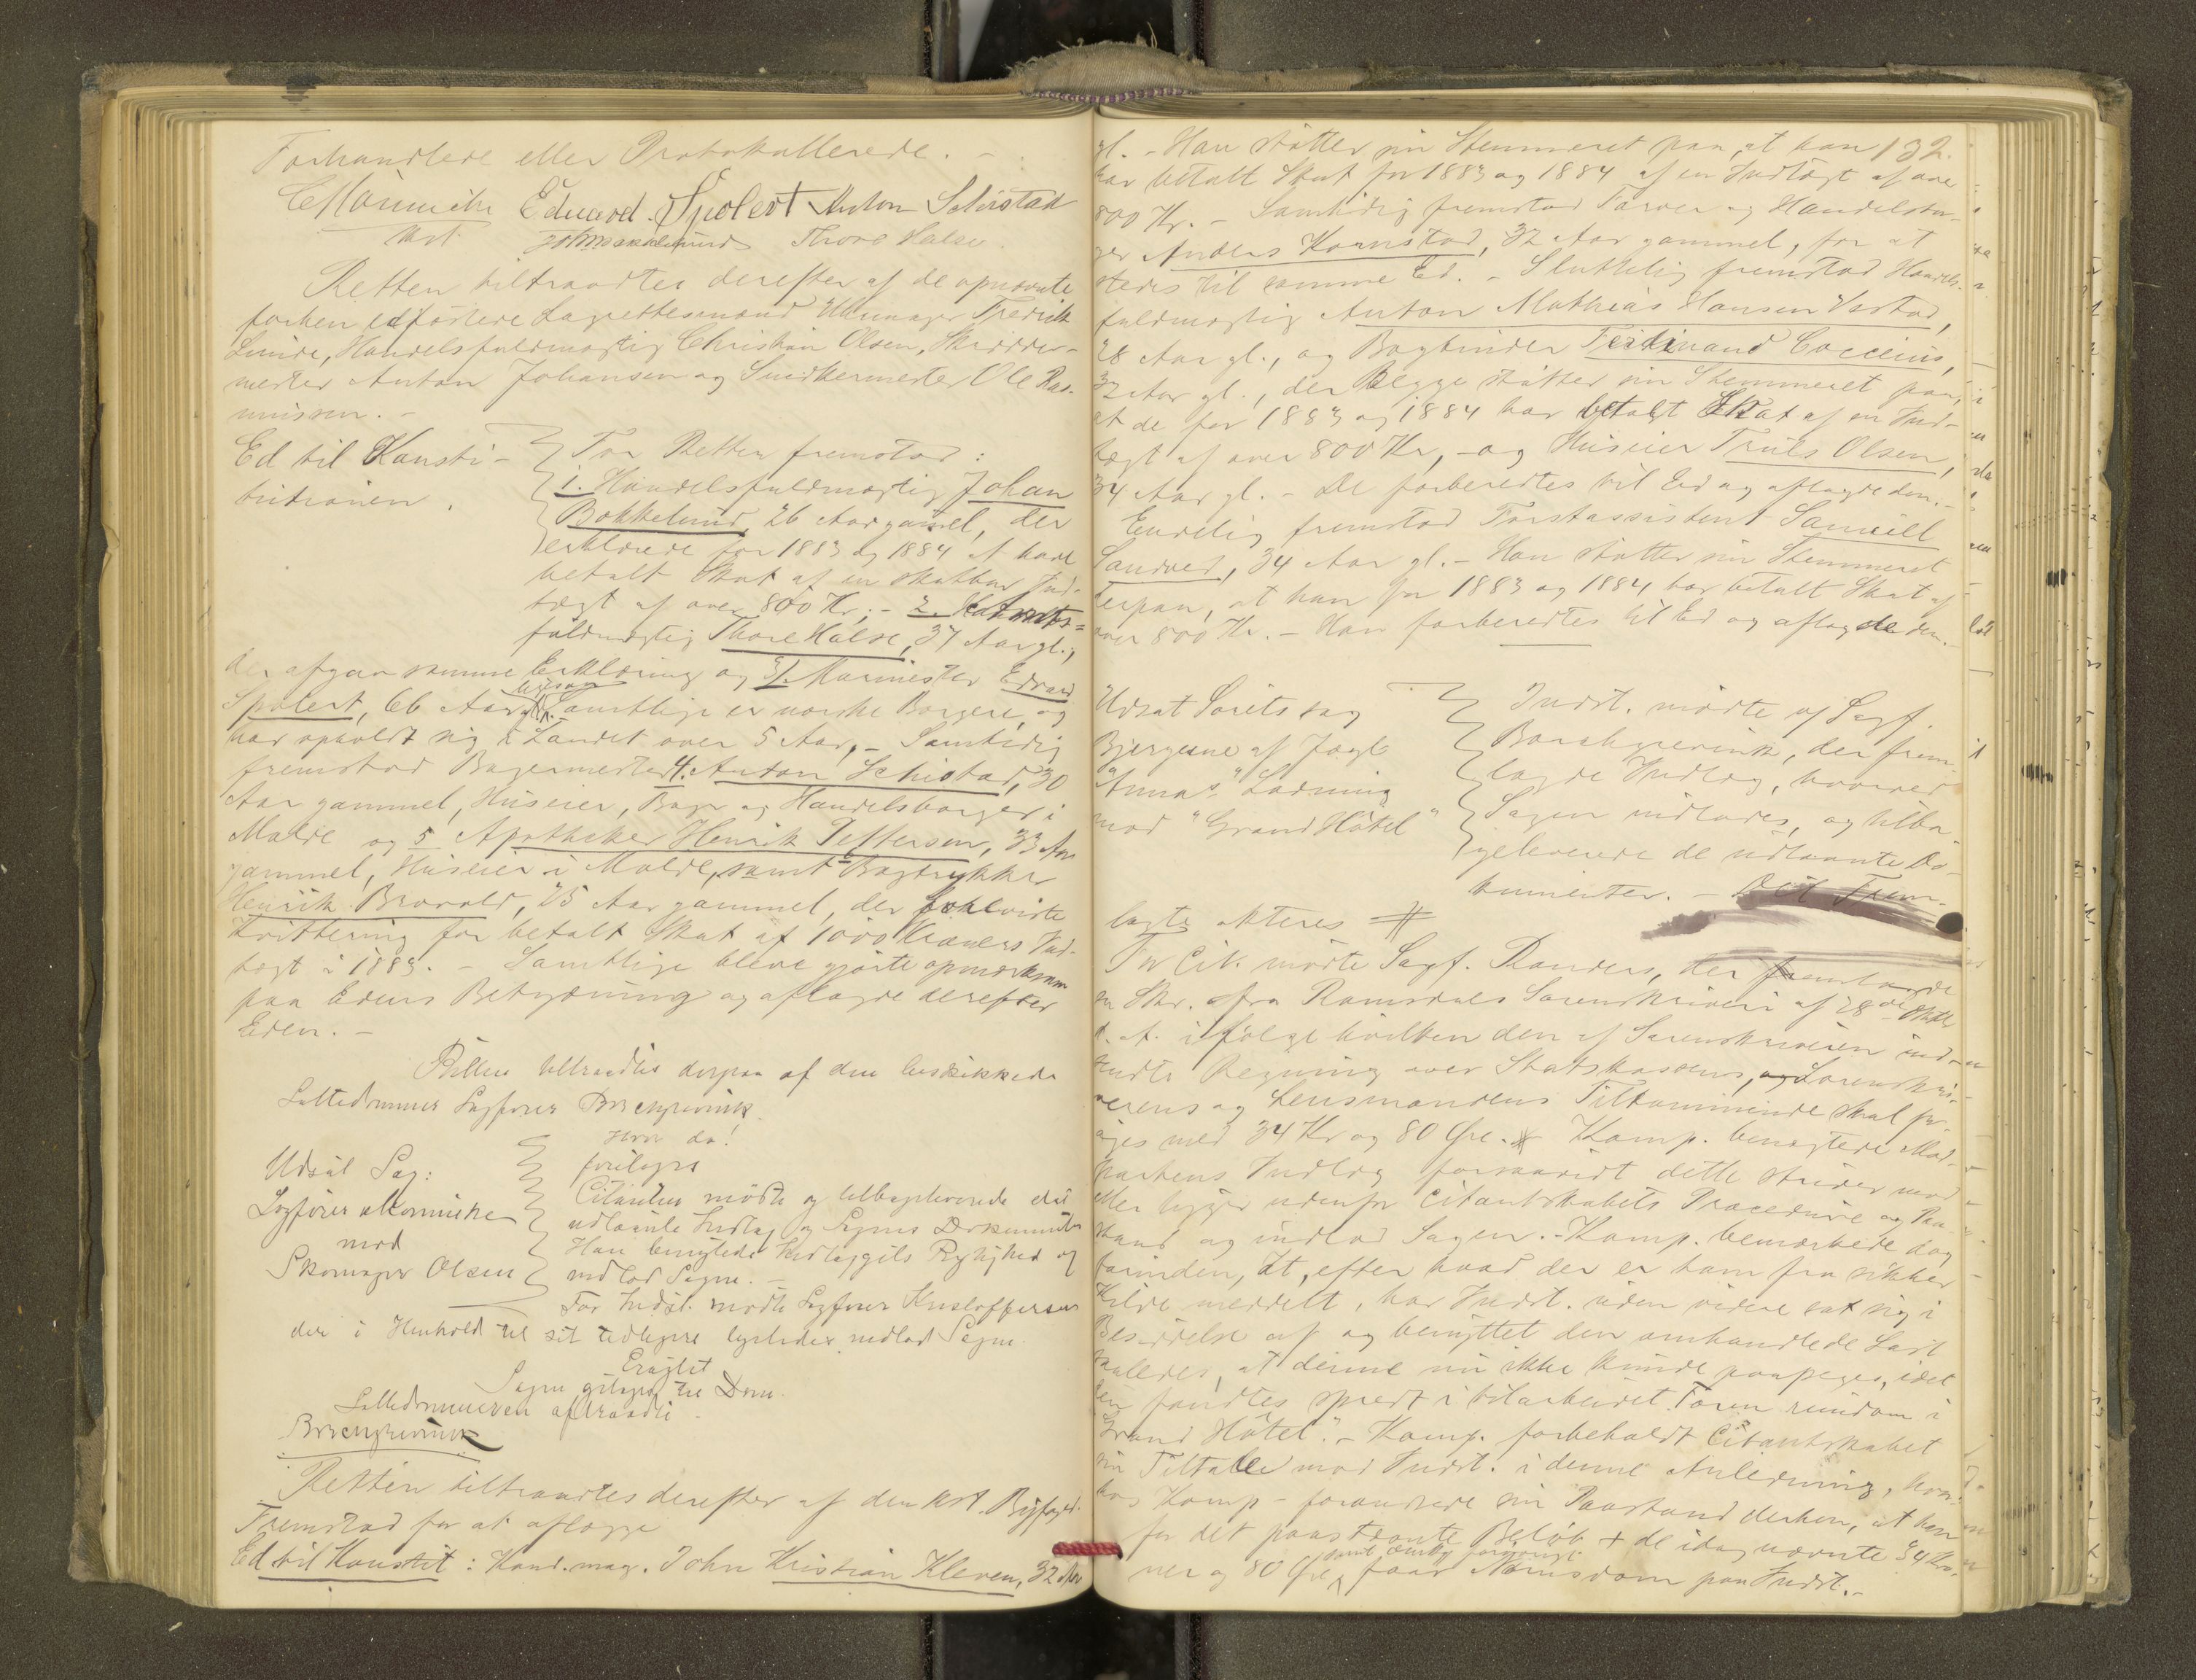 Forhandlede eller Protokollerede. -
Eduard Spolert Anton Schistad
kst. Thore Halse
Retten tiltraadtes derefter af de opnævnte
forhen edfæstede Lagrettesmænd Uhrmager Fredrik
Linde, Handelsfuldmægtig Christian Olsen, Skrædder-
mester Anton Johansen og Snedkermester Ole Ras-
mussen. -
Ed til Konsti-
tutionen.
For Retten fremstod:
1. Handelsfuldmægtig Johan
Bokkelund, 26 Aar gamel, der
erklærede for 1883 og 1884 at have
betalt Skat af en skatbar Ind-
tægt af over 800 Kr; - 2.
fuldmægtig Thore Halse, 37 Aar gl.,
der afgav samme Erklæring og 3. Murmester Edvard
Spolert, 66 Aar gl. Samtlige er norske Borgere, og
har opholdt sig i Landet over 5 Aar, - Samtidig
fremstod Bagermester 4. Anton Schistad, 30
Aar gammel, Huseier, Bager og Handelsborger i
Molde og 5 Apotheker Henrik Deffersen, 33 Aar
gammel, Huseier i Molde, samt Bogtrykker
Henrik Brovold, 25 Aar gammel, der foreviste
Kvittering for betalt Skat af 1000 Kroners Ind-
tægt i 1883. - Samtlige bleve gjorte opmærksom
paa Edens Betydning og aflagde derefter
Eden. -
Retten tiltraadtes derpaa af den beskikkede
Settedommer Sagfører Borchgrevink.
Hvor da!
Udsat Sag:
Sagfører Mørniche
mod
Skomager Olsen
foretages
Citanten mødte og tilbageleverede det
udlaante Indlæg og Sagens Dokumenter
Han benægtede Indlæggets Rigtighed og
indlod Sagen. -
For Indst. mødte Sagfører Kristoffersen
der i Henhold til sit tidligere ligeledes indlod Sagen.
Eragtet
Sagen optages til Dom.
Settedommeren aftraadte.
Borchgrevink
Retten tiltraadtes derefter af den kst. Byfoged.
Fremstod for at aflægge
Ed til Konstit: Kand. mag. John Kristian Kleven, 32 Aar
132.
gl. - Han støtter sin Stemmeret paa, at han
har betalt Skat for 1883 og 1884 af en Indtægt af over
800 Kr. - Samtidig fremstod Farver og Handelsbor-
ger Anders Kornstad, 32 Aar gammel, for at
stedes til samme Ed. - Sluttelig fremstod Handels-
fuldmægtig Anton Mathias Hansen Vestad,
28 Aar gl., og Bogbinder Ferdinand Cocceius,
32 Aar gl., der begge støtter sin Stemmeret paa,
at de for 1883 og 1884 har betalt Skat af en Ind-
tægt af over 800 Kr, - og Huseier Truls Olsen,
34 Aar gl. - De forberedtes til Ed og aflagde den. -
Endelig fremstod Forstassistent Samuel
Sandved, 34 Aar gl. - Han støtter sin Stemmeret
derpaa, at han for 1883 og 1884 har betalt Skat af
over 800 Kr. - Han forberedtes til Ed og aflagde den. -
Udsat Sørets sag
Bjergerne af Jagt
"Annas" Ladning
mod "Grand Hôtel"
Indst. mødte of Sagf.
Borchgrevink, der frem-
lagde Indlæg, hvorved
Sagen indlodes, og tilba-
geleverede de udlaante Do-
kumenter. - Det Frem-
lagte akteres #
For Cit. mødte Sagf. Randers, der fremlagde
en Skr. fra Romsdals Sorenskriveri af 28de Oktbr
d. A. ifølge hvilken den af Sorenskriveren ind-
sendte Regning over Statskassens, og Sorenskri-
verens og Lensmandens Tilkommende skal for-
øges med 34 Kr og 80 Øre. # Komp. benægtede Mod-
partens Indlæg forsaavidt dette strider mod
eller ligger udenfor Citantskabets Procedure og Paa-
stand og indlod Sagen. - Komp. bemærkede dog
forinden, at, efter hvad der er ham fra sikker
Kilde meddelt, har Indst. uden videre sat sig i
Besiddelse af og benyttet den omhandlede Last
saaledes, at denne nu ikke kunde paapeges, idet
den fandtes spredt i tilarbeidet Form rundom i
"Grand Hôtel". - Komp. forbeholdt Citantskabet
sin Tiltale mod Indst. i denne Anledning,
Komp - forandrede sin Paastand derhen, at han
for det paastaaute Beløb + de idag nævnte 34 Kro-
ner og 80 Øre faar Namsdom paa Indst. -